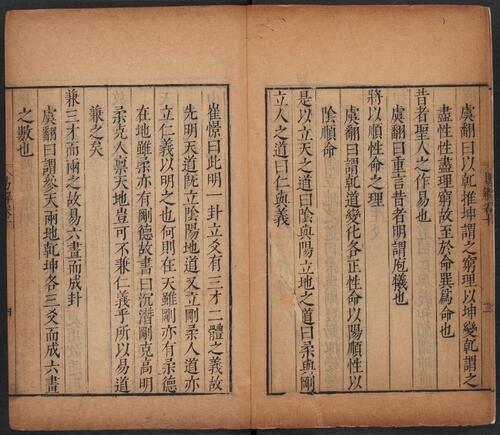 虞翻曰以乹推坤謂之窮理以坤變乹謂之
盡性性盡理窮故至於命巽爲命也
昔者聖人之作易也
虞翻曰重言昔者明謂庖犧也
將以順性命之理
虞翻曰謂乹道變化各正性命以陽順性以
陰順命
是以立天之道曰陰與陽立地之道曰柔與剛
立人之道曰仁與義
崔憬曰此明一卦立爻有三才二體之義故
先明天道旣立陰陽地道又立剛柔人道亦
立仁義以明之也何則在天雖剛亦有柔德
在地雖柔亦有剛德故書曰沉潛剛克高明
柔克人禀天地豈可不兼仁義乎所以易道
兼之矣
兼三才而兩之故易六畫而成卦
虞翻曰謂參天兩地乹坤各三爻而成六畫
之數也